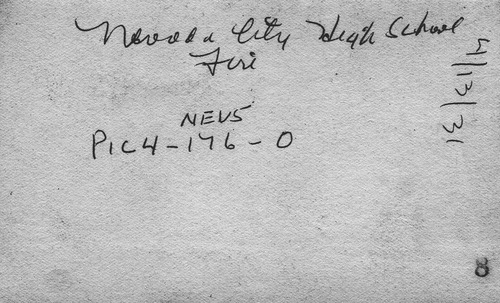 Nevada City High School
Fire
4/13/31
NEVS
PIC4-176-0
8